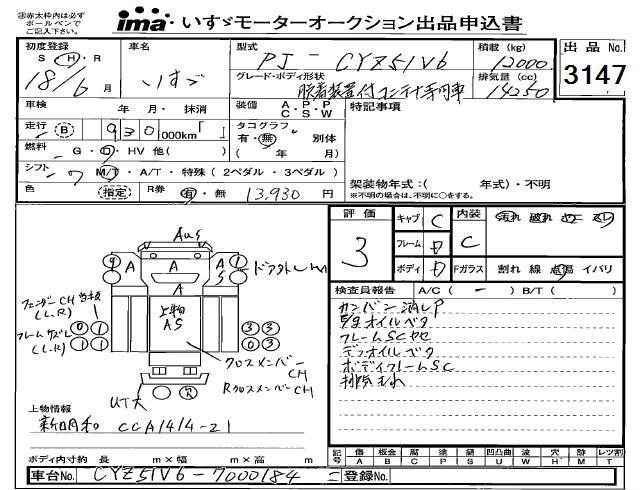 ㊟赤太枠内は必ず
ボールペンで
ご記入下さい。
ima いすゞモーターオークション出品申込書
初度登録 車名 型式 積載 (kg) 出品No.
S・H・R PJ-CYZ51V6 12000 3147
18/6月 いすゞ グレード・ボディ形状 排気量 (cc)
脱着装置付コンテナ専用車 14250
車検 年 月・抹消 装備 A・P・P C・S・W 特記事項
走行 B 930,000km「 」 タコグラフ
燃料 G・D・HV 他( ) 有・無 別体
( 年 月)
シフト 7 M/T・A/T・特殊(2ペダル・3ペダル) 架装物年式:( 年式)・不明
※不明の場合は、不明に○をする。
色 指定 R券 有・無 13,930 円
評価 キャブ C 内装
3 フレーム C
ボディ Fガラス 割れ 線 点傷 イバリ
検査員報告 A/C( - ) B/T( )
カンバン消しP
E/gオイルベタ
フレームSCサビ
デフオイルベタ
ボディフレームSC
AuS
A A A A S
フェンダーCH
(L.R)
(L.R)
上物
AS
クロスメンバー
CH
RクロスメンバーCH
R
上物情報
新明和 CCA1414-21
ボディ内寸約 長 m×幅 m×高 m
記号 傷 板金 腐 塗 錆 凹凸曲 波 穴 跡 レツ割
A B C P S U W H M T
車台No. CYZ51V6-7000184 登録No.